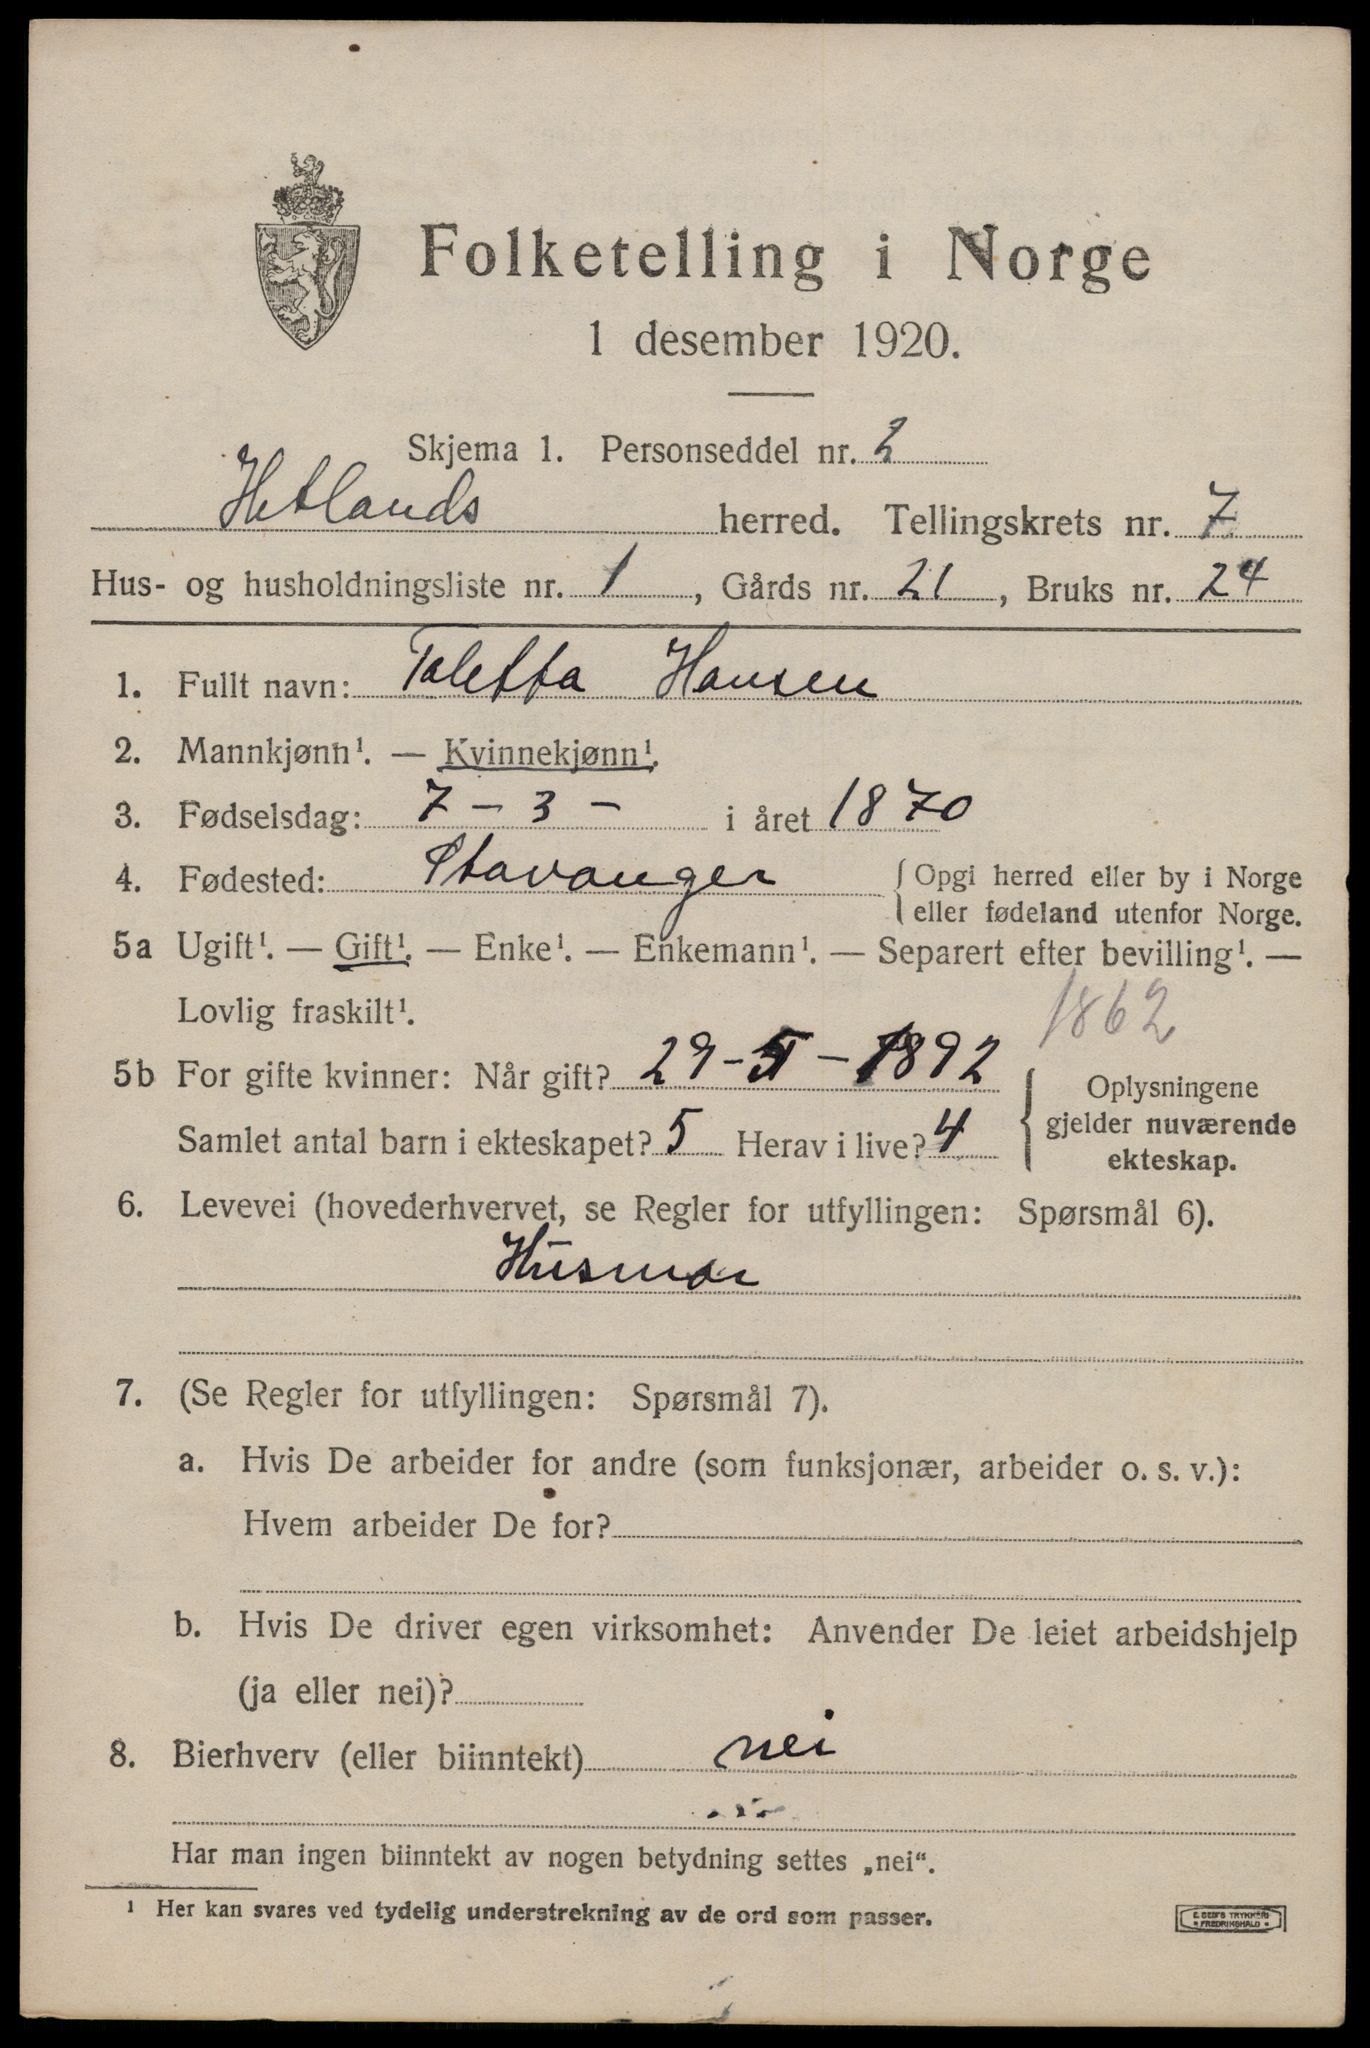 Folketelling i Norge
1 desember 1920.
Skjema 1. Personseddel nr. 2
Hetlands herred. Tellingskrets nr. 7
Hus- og husholdningsliste nr. 1, Gårds nr. 21, Bruks nr. 24
1. Fullt navn: Taletta Hansen
2. Mannkjønn¹. — Kvinnekjønn¹.
3. Fødselsdag: 7 - 3 - i året 1870
4. Fødested: Stavanger { Opgi herred eller by i Norge
eller fødeland utenfor Norge.
5a Ugift¹. — Gift¹. — Enke¹. — Enkemann¹. — Separert efter bevilling¹. —
Lovlig fraskilt¹.
1862
5b For gifte kvinner: Når gift? 29-5-1892
Samlet antal barn i ekteskapet? 5 Herav i live? 4
{ Oplysningene
gjelder nuværende
ekteskap.
6. Levevei (hovederhvervet, se Regler for utfyllingen: Spørsmål 6).
Husmor
7. (Se Regler for utfyllingen: Spørsmål 7).
a. Hvis De arbeider for andre (som funksjonær, arbeider o. s. v.):
Hvem arbeider De for?
b. Hvis De driver egen virksomhet: Anvender De leiet arbeidshjelp
(ja eller nei)?
8. Bierhverv (eller biinntekt) nei
Har man ingen biinntekt av nogen betydning settes „nei“.
¹ Her kan svares ved tydelig understrekning av de ord som passer.
E. SEM'S TRYKKERI
FREDRIKSHALD